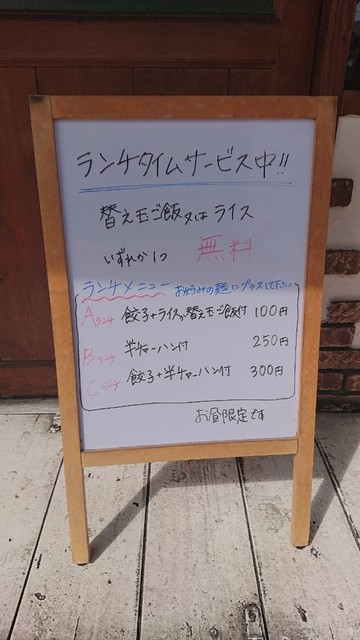 ランチタイムサービス中!!
替え玉ご飯又は ライス
いずれか1つ 無料
ランチメニュー お好みの麺にプラスして下さい
Aランチ 餃子+ライス又替え玉ご飯付 100円
Bランチ 半チャーハン付 250円
Cランチ 餃子+半チャーハン付 300円
お昼限定です